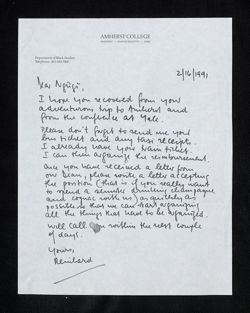 AMHERST COLLEGE
AMHERST · MASSACHUSETTS · 01002
Department of Black Studies
Telephone
2/16/1991
Dear Ngũgĩ,
I hope you recovered from your
adventurous trip to Amherst and
from the conference at Yale.
Please don't forget to send me your
bus ticket and any taxi receipts.
I already have your train ticket.
I can then organize the reimbursement.
Once you have received a letter from
our Dean, please write a letter accepting
the position (that is if you really want
to spend a semester drinking champagne
and cognac with us) as quickly as
possible so that we can start organizing
all the things that have to be organized.
Will call you within the next couple
of days.
Yours,
Reinhard